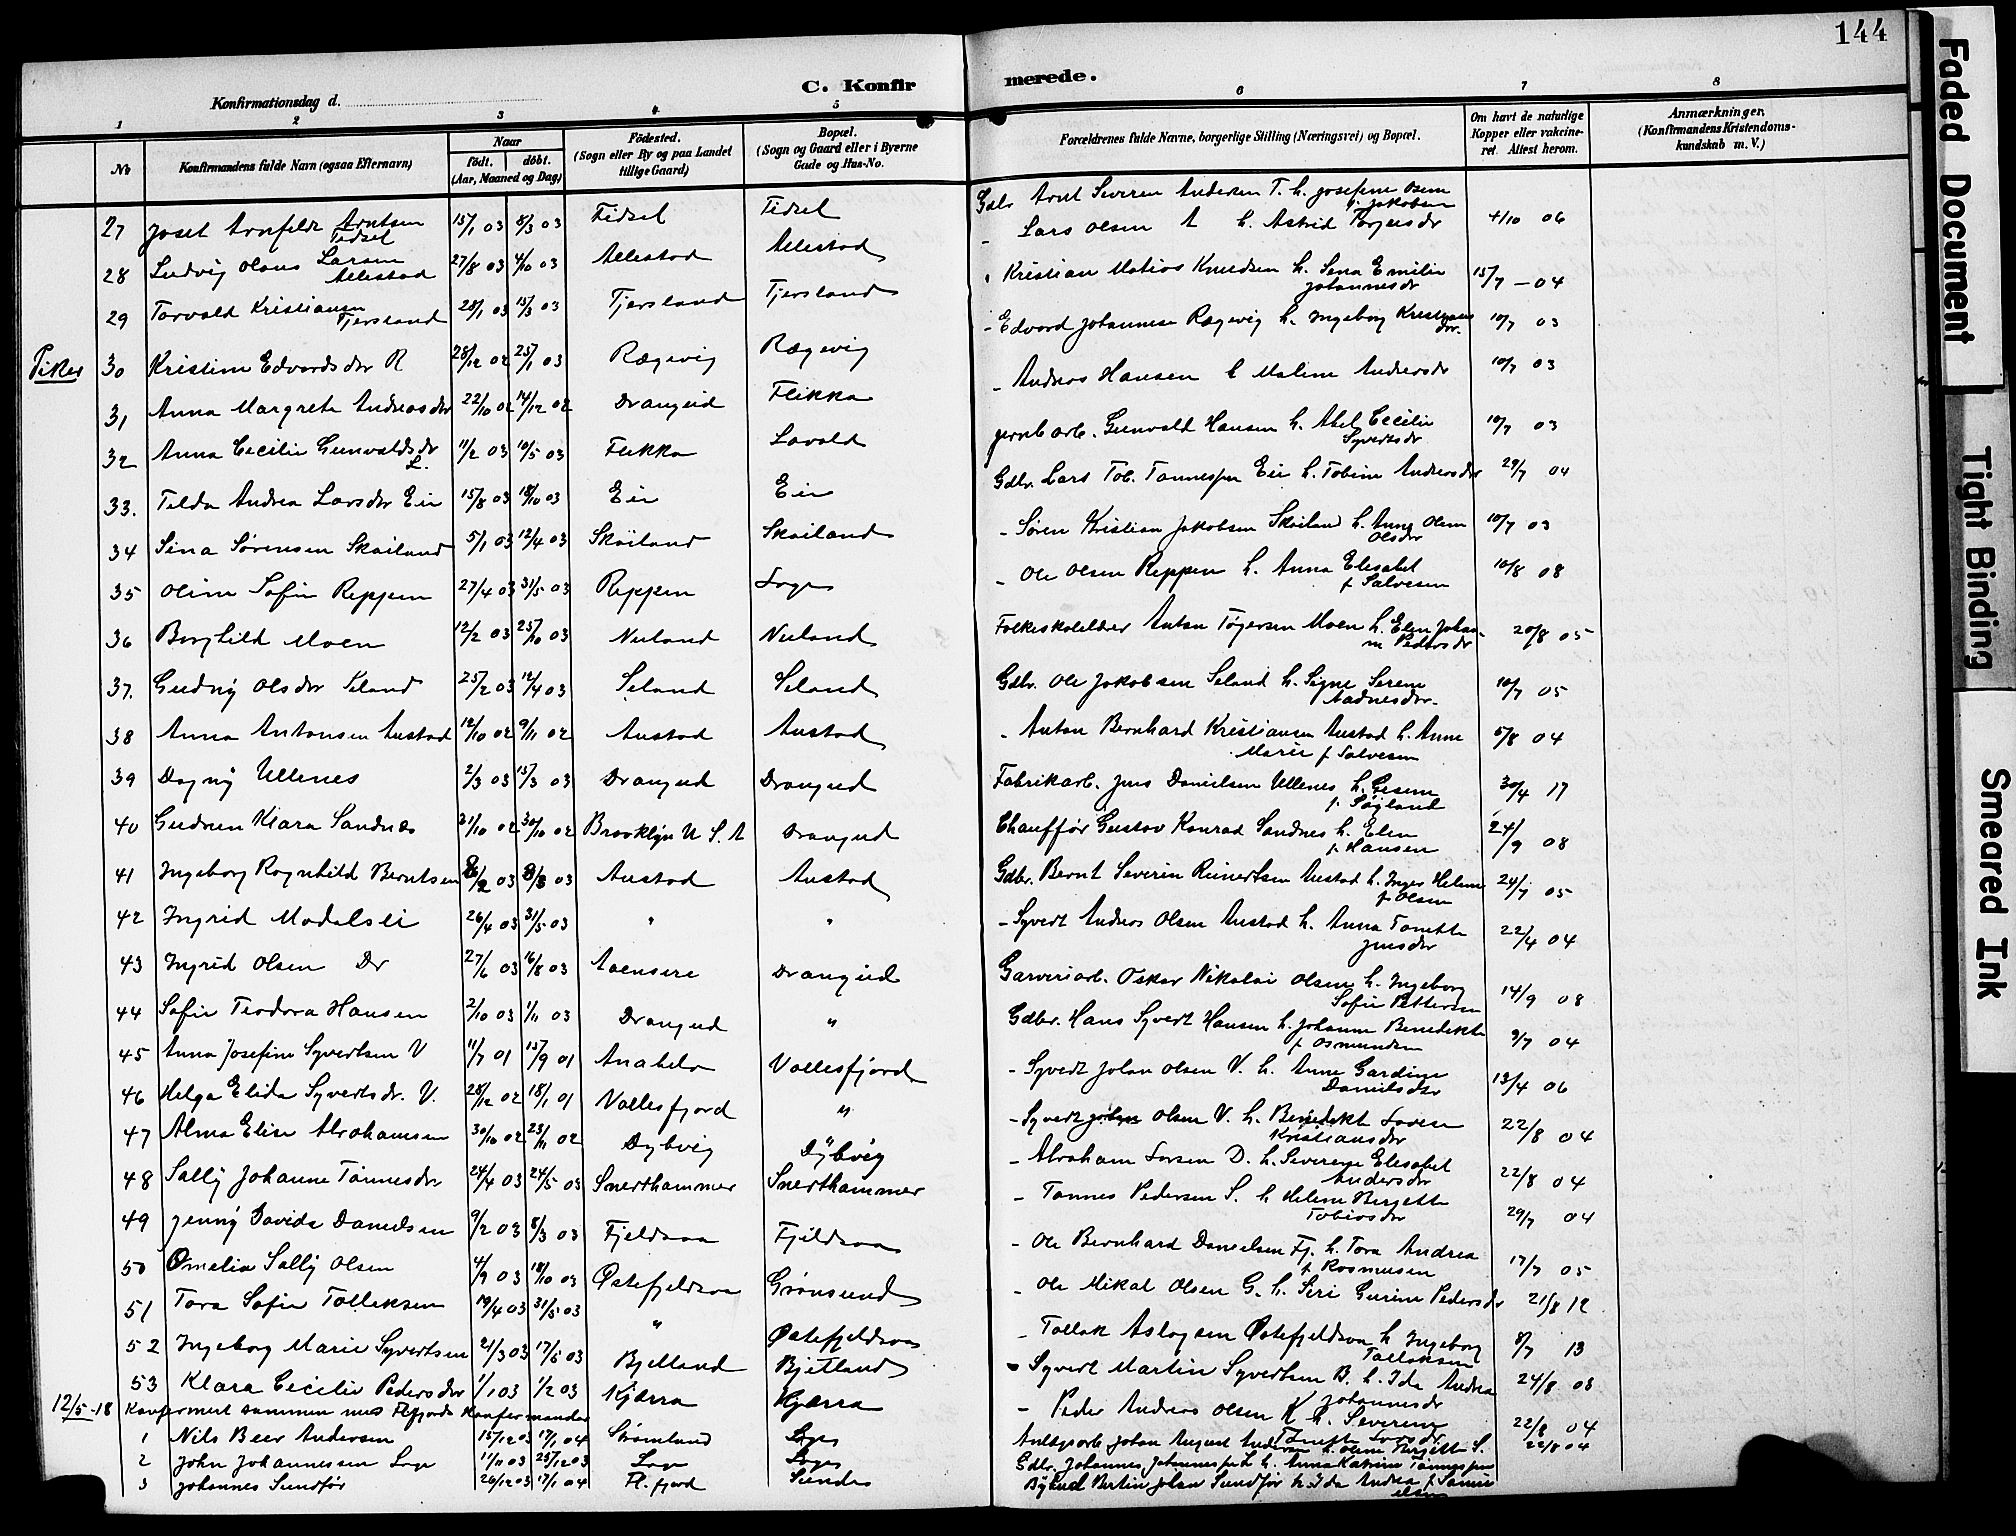 144
C. Konfirmerede.
Konfirmationsdag d.
1 2 3 4 5 6 7 8
No Konfirmandens fulde Navn (ogsaa Efternavn) Naar födt. döbt. (Aar, Maaned og Dag) Födested. (Sogn eller By og paa Landet tillige Gaard) Bopæl. (Sogn og Gaard eller i Byerne Gade og Hus-No. Forældrenes fulde Navne, borgerlige Stilling (Næringsvei) og Bopæl. Om havt de naturlige Kopper eller vakcineret. Attest herom. Anmærkninger. (Konfirmandens Kristendomskundskab m. V.)
27 Josef Arnfeldt Arntsen Fidsel 15/1 03 8/3 03 Fidsel Fidsel Gdbr Arnt Severin Andersen F. h. Josefine Osem f. Jakobsen
28 Ludvig Olaus Larsen Allestad 27/8 03 4/10 03 Allestad Allestad - Lars Olsen A h. Astrid Torjusdr 4/10 06
29 Torvald Kristiansen Tjersland 28/1 03 15/3 03 Tjersland Tjersland Kristian Matias Knudsen h. Sena Emilie Johannesdr 15/7 - 04
Piker 30 Kristine Edvardsdr R 28/12 02 25/1 03 Rægevig Rægevig - Edvard Johannesen Rægevig h. Ingeborg 10/7 03
31 Anna Margrete Andreasdr 22/10 02 14/12 02 Drangeid Flikka - Andreas Hansen h Malene Andersdr 10/7 03
32 Anna Cecilie Gunvaldsdr L. 11/2 03 10/5 03 Flikka Lavold Jernb arb. Gunvald Hansen h. Abel Cecilie Syvertsdr 10/7 03
33. Telda Andrea Larsdr Eie 15/8 03 18/10 03 Eie Eie Gdbr. Lars Tob. Tønnesen Eie h. Tobine Andersdr 29/7 04
34 Sina Sørensen Skoiland 5/1 03 12/4 03 Skoiland Skoiland - Søren Kristian Jakobsen Skoiland h. Anna Olene Olsdr 10/7 03
35 Oline Sofie Reppen 27/4 03 31/5 03 Reppen Loge - Ole Olsen Reppen h. Anna Elisabet f Salvesen 10/8 08
36 Borghild Moen 12/2 03 25/10 03 Neuland Neuland Folkeskolelærer Anton Tøgersen Moen h. Elen Johanne Pedersdr 20/8 05
37. Gudny Olsdr Seland 25/2 03 12/4 03 Seland Seland Gdbr. Ole Jakobsen Seland h. Signe Serene Aadnesdr. 10/7 05
38 Anna Antonsen Austad 12/10 02 9/11 02 Austad Austad - Anton Bernhard Kristiansen Austad h. Anne Marie f Salvesen 5/8 04
39 Dagny Ullenes 2/3 03 15/3 03 Drangeid Drangeid Fabrikarb. Jens Danielsen Ullenes h. Gesine f. Søyland 30/4 17
40 Gudrun Klara Sandnes 21/10 02 30/10 02 Brooklyn U. S. A Drangeid Chauffør Gustav Konrad Sandnes h. Elen f. Hansen 24/9 08
41 Ingeborg Ragnhild Berntsen 8/2 03 8/3 03 Austad Austad Gdbr. Bernt Severin Reinertsen Austad h. Inger Helene f Olsen 24/7 05
42 Ingrid Modalsli 26/4 03 31/5 03 " " - Syvert Andreas Olsen Austad h. Anna Tomette Jensdr 22/4 04
43 Ingrid Olsen Dr 27/6 03 16/8 03 Aaensire Drangeid Garveriarb. Oskar Nikolai Olsen h. Ingeborg Sofie Pettersen 14/9 08
44 Sofie Teodora Hansen 2/10 03 1/11 03 Drangeid " Gdbr. Hans Syvert Hansen h. Johanne Benedikte f Osmundsen 9/7 04
45 Anna Josefine Syvertsen V 11/7 01 15/9 01 Anabelø Vollesfjord - Syvert Johan Olsen V. h. Anne Gardine Danielsdtr 13/4 06
46 Helga Elida Syvertsdr. V. 28/12 02 18/1 01 Vollesfjord " - Syvert Johan Olsen V. h. Benedikt Lovise Kristiansdr 22/8 04
47 Alma Elise Abrahamsen 30/10 02 23/11 02 Dybvig Dybvig - Abraham Larsen D. h. Severine Elisabet Andersdr 22/8 04
48 Sally Johanne Tønnesdr 24/4 03 24/5 03 Snerthammer Snerthammer - Tønnes Pedersen S. h Helene Bergitte Tobiasdr 29/7 04
49 Jenny Davida Danielsen 9/2 03 8/3 03 Fjeldsaa Fjeldsaa - Ole Bernhard Danielsen Fj. h. Tora Andrea f Rasmusen 17/7 05
50 Omelia Sally Olsen 4/9 03 18/10 03 Østefjeldsaa Grønsund - Ole Mikal Olsen G. h. Seri Gurine Pedersdr 21/8 12
51 Tora Sofie Tolleksen 19/4 03 31/5 03 " Østefjeldsaa - Tollak Aslagsen Østefjeldsaa h Ingeborg Tollaksen 8/7 13
52 Ingeborg Marie Syvertsen 21/3 03 17/5 03 Bjelland Bjelland - Syvert Martin Syvertsen B. h. Ida Andrea f Johannesdr 24/8 08
53 Klara Cecilie Pedersdr 1/1 03 1/2 03 Kjærra Kjærra - Peder Andreas Olsen K h. Severine Larsdr 22/8 04
12/5 - 18 Konfirmert sammen med Flfjords Konfirmander
1 Nils Beer Andersen 15/12 03 17/1 04 Strømland Loge Anlegsarb Johan August Andersen h. Oline Bergitte S. 22/8 04
2 John Johannessen Loge 11/11 03 25/12 03 Loge Loge Gdbr. Johannes Johannessen L h. Anna Katrine Tønnessen
3 Johannes Sundfør 26/12 03 17/1 04 Fl. fjord Sunde Bertin Johan Sundfør h. Ida Andrea f Samuelsen
Faded Document
Tight Binding
Smeared Ink